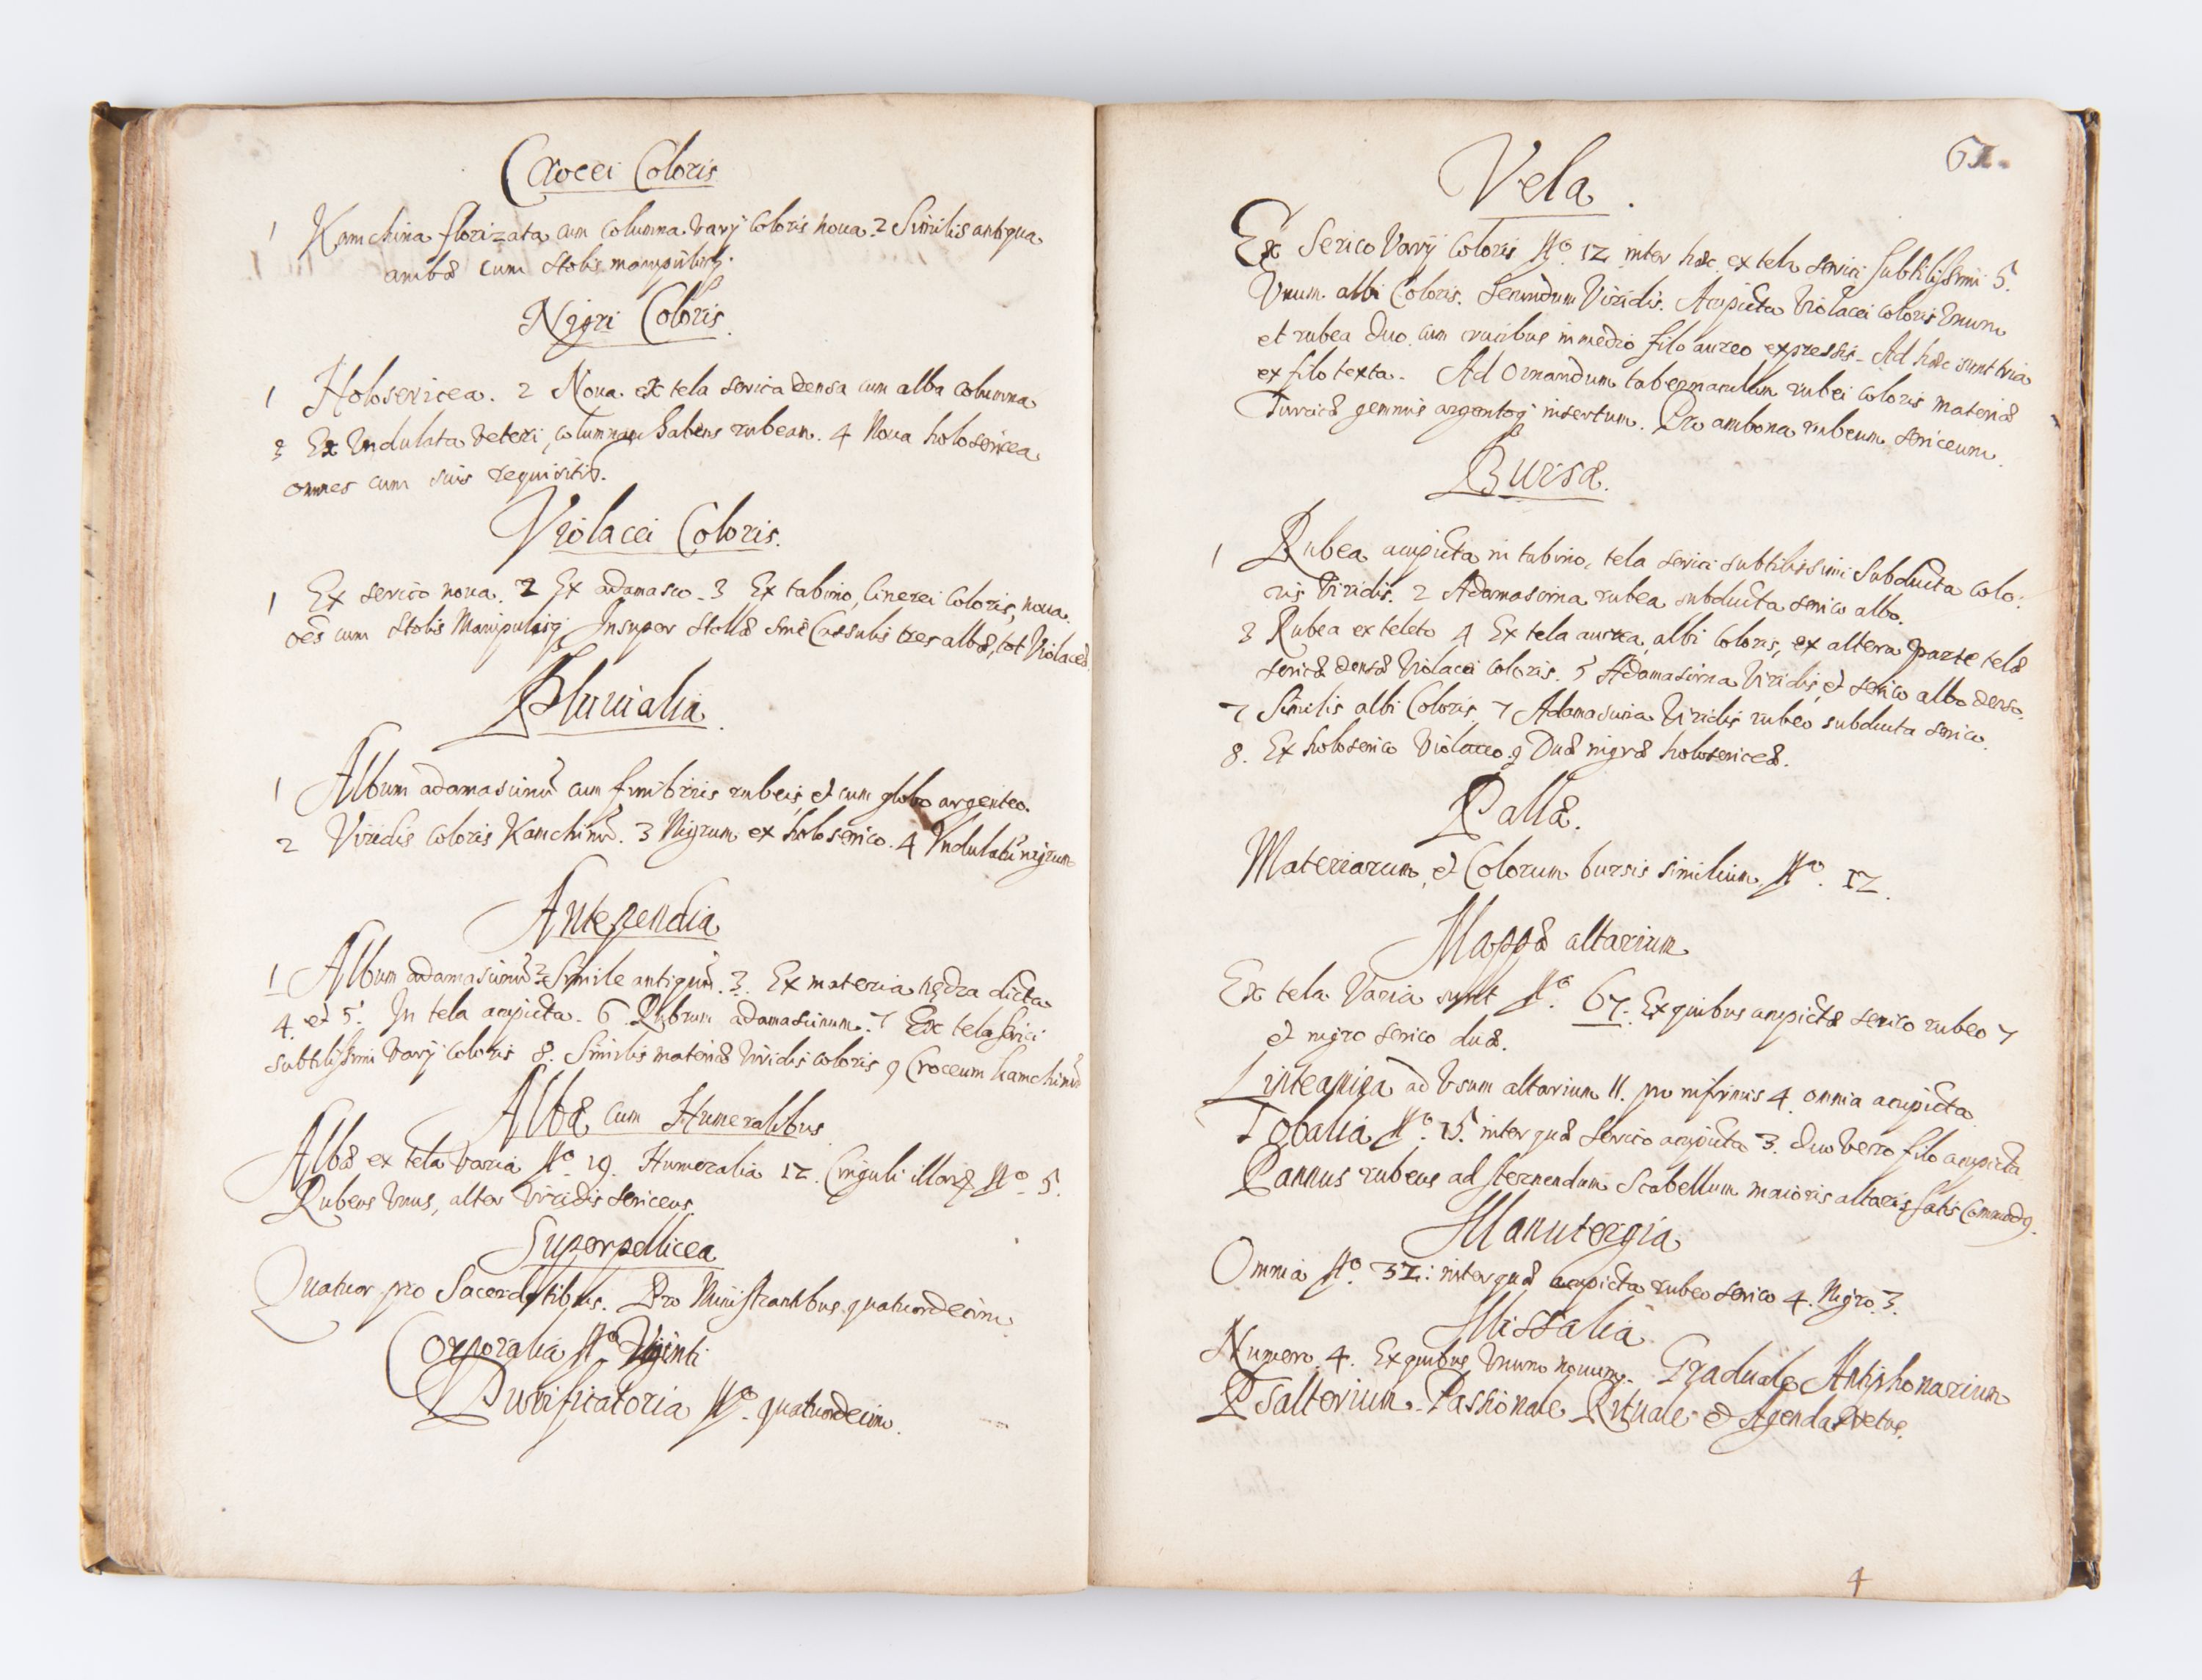 Crocei Coloris
1 Kamchina florizata cum columna varij coloris noua. 2 Similis antiqua
ambæ cum stolis manipulisq.
Nigri Coloris.
1 Holosericea. 2 Noua ex tela serica densa cum alba columna
3 Ex Undulata veteri, columnam habens rubeam. 4 Noua holosericea
omnes cum suis requisitis.
Violacei Coloris.
1 Ex serico noua. 2 Ex adamasco. 3 Ex tabino, Cinerei Coloris, noua.
oēs cum stolis Manipulisq. Insuper stollæ sine Cassulis tres albæ, tot Violaceæ.
Pluuialia.
1 Album adamascinū cum fimbriis rubeis, et cum globo argenteo.
2 Viridis coloris Kamchinū. 3 Nigrum ex holoserico. 4 Undulatū nigrum
Antependia
1 Album adamascinū 2 Simile antiquū. 3. Ex materia dicta
4. et 5. In tela acupicta. 6 Rubrum adamascinum. 7 Ex tela serici
subtilissimi varij coloris 8. Similis materiæ viridis coloris 9 Croceum kamchinū
Albæ cum Humeralibus
Albæ ex tela varia Nº 19. Humeralia 12. Cinguli illorū Nº. 5.
Rubeus Unus, alter Viridis sericeus.
Superpellicea
Quatuor pro Sacerdotibus. Pro Ministrantibus quatuordecim.
Corporalia Nº Viginti
Purificatoria Nº. quatuordecim.
61.
Vela.
Ex Serico Varij Coloris Nº. 12 inter hæc ex tela serici subtilissimi 5.
Unum albi Coloris. Secundum Viridis. Acupicta Violacei coloris Unum
et rubea duo cum crucibus in medio filo aureo expressis. Ad hæc sunt tria
ex filo texta. Ad Ornandum tabernaculum rubei coloris materiæ
Turcicæ gemmis argentoq. insertum. Pro ambona rubeum sericeum.
Bursæ.
1 Rubea acupicta in tabino, tela serici subtilissimi Subducta colo:
ris Viridis. 2 Adamascina rubea subducta serico albo.
3 Rubea ex teleto 4 Ex tela aurea, albi Coloris, ex altera parte telæ
sericæ densæ Violacei Coloris. 5 Adamascina Viridis, et serico albo denso.
7 Similis albi Coloris. 7 Adamascina Viridis rubeo subducta serico.
8. Ex holoserico Violaceo. 9 Duæ nigræ holosericeæ.
Pallæ.
Materiarum, et Colorum bursis similium Nº. 12.
Mappæ altarium
Ex tela Varia sunt Nº. 67. Ex quibus acupictæ serico rubeo 7
et nigro serico duæ.
Linteamina ad Usum altarium 11. pro infirmis 4. omnia acupicta
Tobalia Nº. 15. inter quæ Serico acupicta 3. duo vero filo acupicta.
Pannus rubeus ad sternendum Scabellum maioris altaris satis Com̄odq.
Manutergia
Omnia Nº. 32: inter quæ acupicta rubeo serico 4. Nigro 3.
Missalia
Numero 4. Ex quibus Unum nouum. Graduale Antiphonarium
Psalterium. Passionale Rituale et Agenda vetus.
4